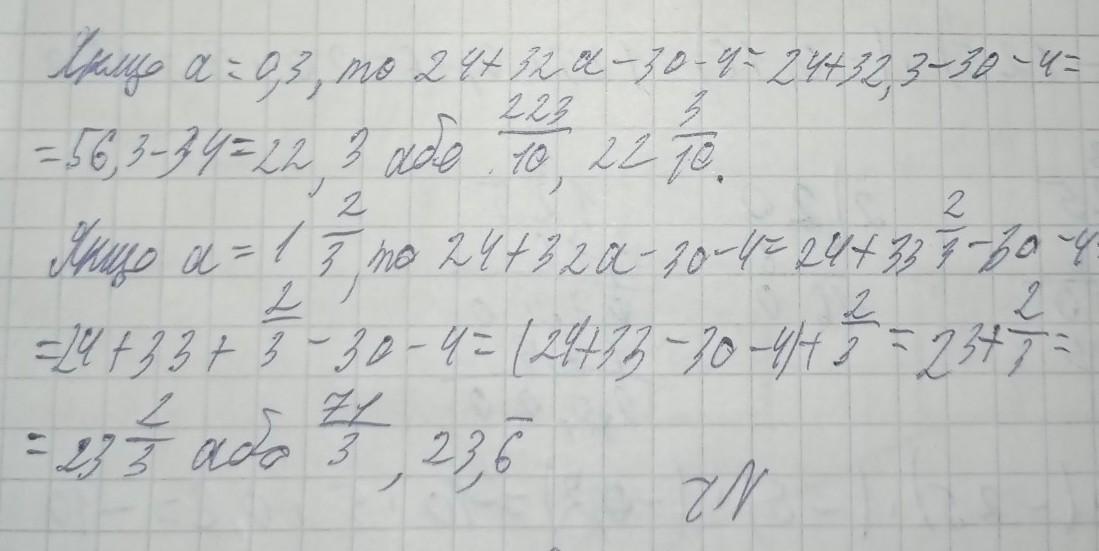 Якщо a = 0,3, то 24+32a-30-4= 24+32,3-30-4=
=56,3-34=22,3 або 223/10, 22 3/10.
Якщо a = 1 2/3, то 24+32a-30-4= 24+33 2/3-30-4=
=24+33+2/3-30-4=(24+33-30-4)+2/3=23+2/3=
=23 2/3 або 71/3, 23,6̅